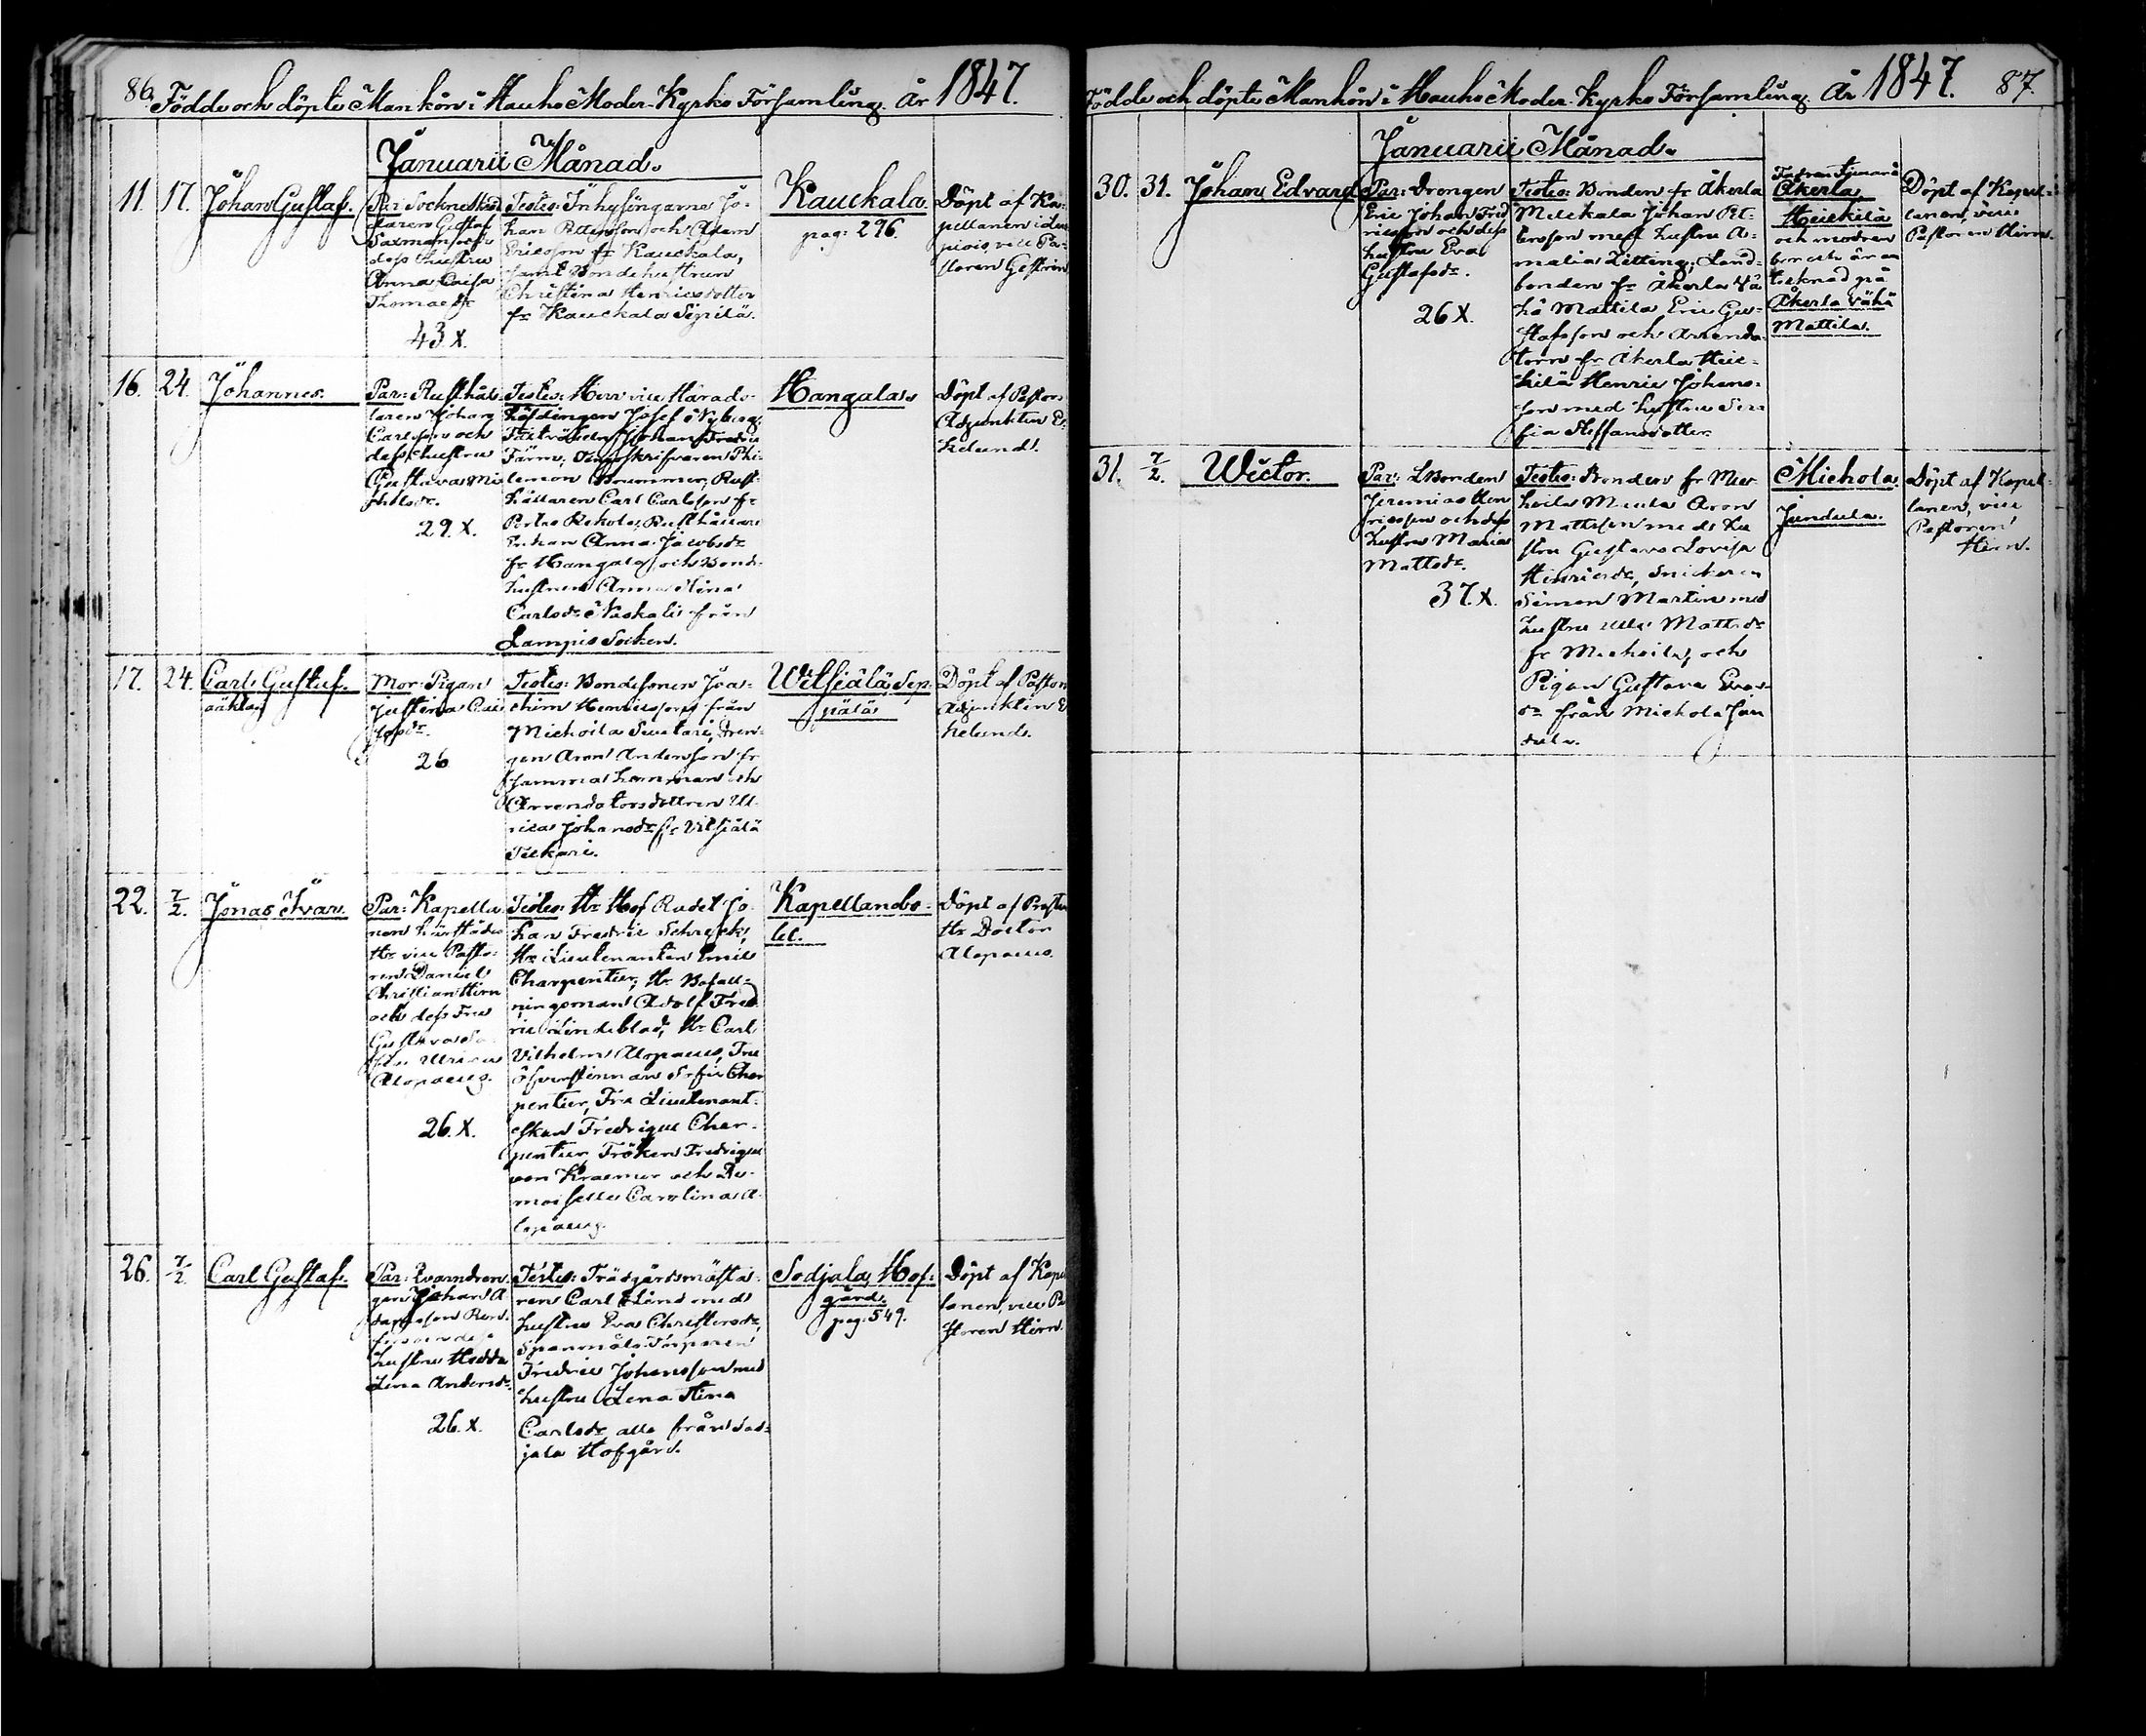 86. Födde och döpte Mankön i Hauho Moder-Kyrko Församling. År 1847.
Januarii Månad.
11. 17. Johan Gustaf.
Par: Sockneskräd-
daren Gustaf
Saxman och
dess hustru
Anna Caisa
Thomasdr
43. X.
Testes: Inhysingarne Jo-
han Pettersson och Adam
Ericsson fr. Kauckala,
samt Bondehustrun
Christina Henricsdotter
fr. Kauckala Sipilä.
Kauckala
pag: 296.
Döpt af Ka-
pellanen
vice Pa-
storen
16. 24. Johannes.
Par: Rusthål-
laren Johan
Carlsson och
dess hustru
Gustava Mi-
chelsdr.
29. X.
Testes: Herr vice Härads-
höfdingen Josef Nyberg,
Johan Fredric
Färm, Phi-
lemon Brummer, Rust-
hållaren Carl Carlsson fr.
Rekola, Rusthållare
Enkan Anna Jacobsdr
fr. Hangala, och Bond-
hustrun Anna Stina
Carlsdr från
Lampis Socken.
Hangala
Döpt af Pastors
Adjunkten E-
kelund.
17. 24. Carl Gustaf.
oäkta
Mor: Pigan
Justina Cai-
26
Testes: Bondesonen Joa-
chim Henricsson från
Michoila Dren-
gen Aron Andersson fr
samma hemman och
Arrendatorsdottren Ul-
rica Johansdr fr. Vitsiälä
Witsiälä Sep-
pälä
Döpt af Pastors
Adjunkten E-
kelund.
22. 7/2. Jonas Ivar.
Par: Kapella-
nen härstädes
Hr vice Pasto-
ren Daniel
Christian Hirn
och dess Fru
Gustava So-
fia Ulrica
Alopaeus.
26. X.
Testes: Hr Hof Rådet Jo-
han Fredric
Hr Lieutenanten Emil
Charpentier, Hr Befall-
ningsman Adolf Fred-
ric Lindeblad, Hr Carl
Vilhelm Alopaeus, Fru
Öfverstinnan Sofie Char-
pentier, Fru Lieutenant-
skan Fredrique Char-
pentier, Fröken Fredrique
von Kraemer och De-
moiselle Carolina A-
lopaeus.
Kapellansbo-
let.
Döpt af Prosten
Hr Doctor
Alopaeus.
26. 7/2. Carl Gustaf.
Par: Qvarndren-
gen Johan A-
damsson
och dess
hustru Hedda
Lena Andersdr.
26. X.
Testes: Trädgårdsmästa-
ren Carl Lind med
hustru Eva Christersdr,
Spanmåls-Torparen
Fredric Johansson med
hustru Lena Stina
Carlsdr alla från Sod-
jala Hofgård.
Sodjala Hof-
gård.
pag: 549.
Döpt af Kapel-
lanen, vice Pa-
storen Hirn.
Födde och döpte Mankön i Hauho Moder-Kyrko Församling. År 1847. 87.
Januarii Månad.
30. 31. Johan Edvard.
Par: Drengen
Eric Johan Fred-
ricsson och dess
hustru Eva
Gustafsdr.
26 X.
Testes: Bonden fr Åkerla
Mickala Johan Pet-
tersson med hustru A-
malia Zitting, Land-
bonden fr Åkerla Vä-
hä Mattila Eric Gus-
tafsson och Arrenda-
torn fr Åkerla Heic-
kilä Henric Johans-
son med hustru So-
fia Steffansdotter.
Fadren tjenar å
Åkerla
Heickilä
och modren
är an-
tecknad på
Åkerla Vähä
Mattila.
Döpt af Kapel-
lanen, vice
Pastoren Hirn.
31. 7/2. Wictor.
Par: LBonden
Jeremias Hen-
ricsson och dess
hustru Maria
Mattsdr.
37. X.
Testes: Bonden fr Mic-
hoila Aron
Mattsson med hu-
stru Gustava Lovisa
Henricsdr, Snickaren
Simon Martin med
hustru Ulla Mattsdr
fr Michoila, och
Pigan Gustava
dr från Michola Jun-
dula.
Michola
Jundula.
Döpt af Kapel-
lanen, vice
Pastoren
Hirn.